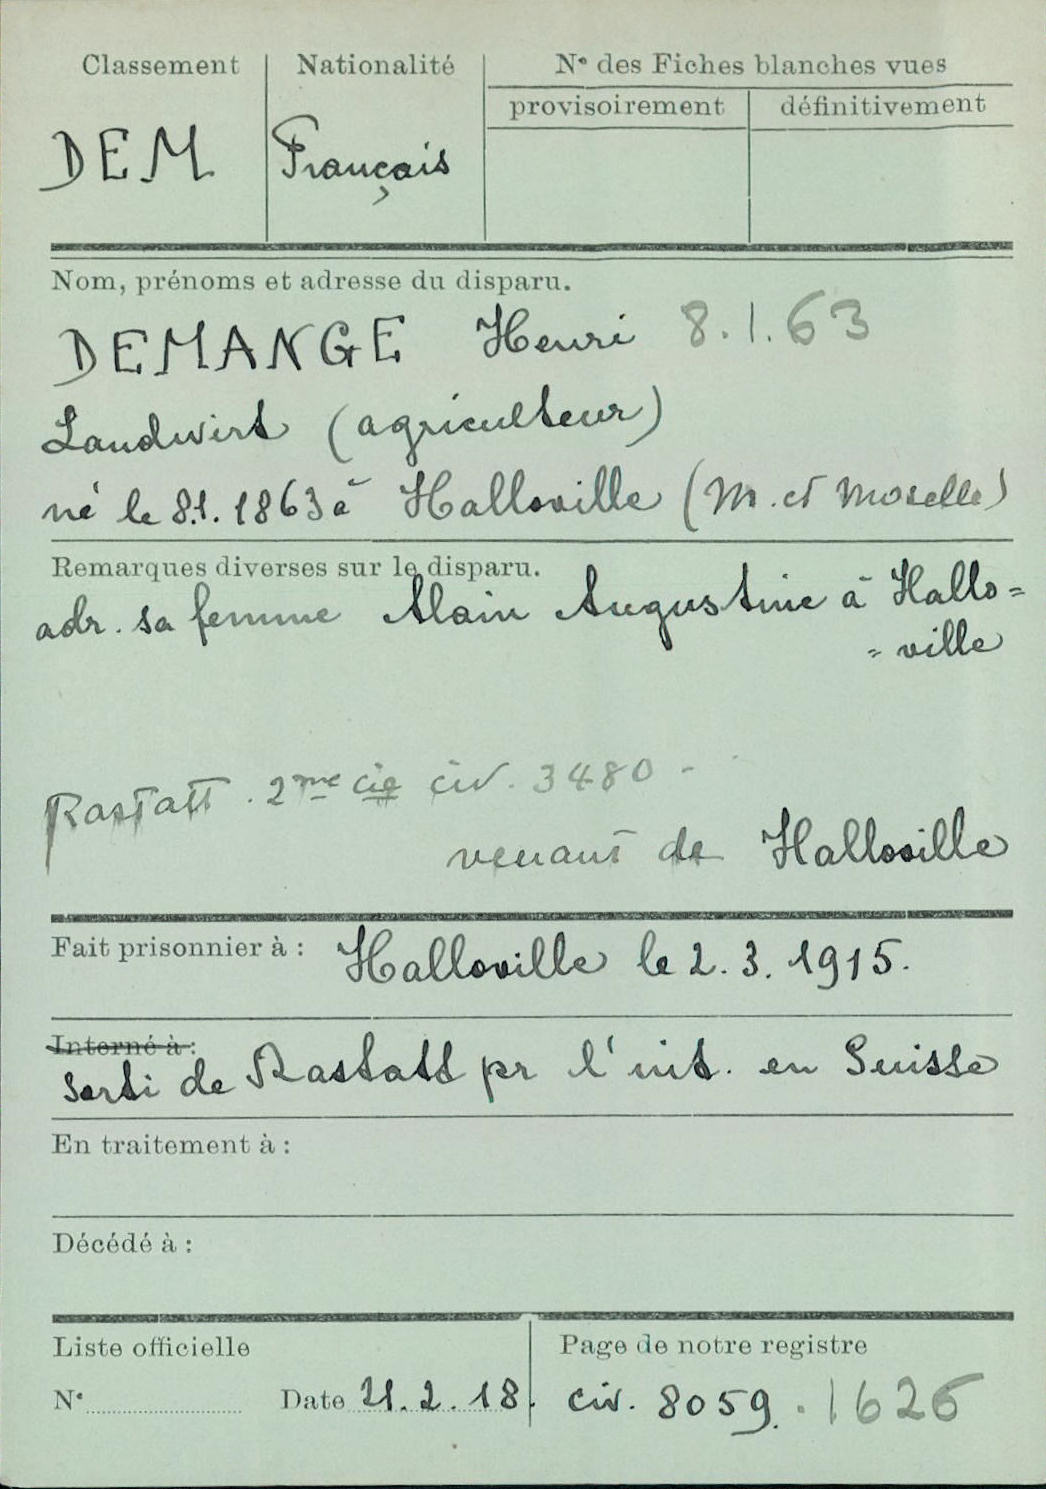 Classement Nationalité Nº des Fiches blanches vues
provisoirement définitivement
DEM Français
Nom, prénoms et adresse du disparu.
DEMANGE Henri 8.1.63
Landwirt (agriculteur)
né le 8.1.1863 à Halloville (M. et Moselle)
Remarques diverses sur le disparu.
adr. sa femme Alain Augustine à Hallo=
=ville
Rastatt. 2me cie civ. 3480 -
venant de Halloville
Fait prisonnier à : Halloville le 2.3.1915.
Interné à :
Sorti de Rastatt pr l'int. en Suisse
En traitement à :
Décédé à :
Liste officielle Page de notre registre
Nº Date 21.2.18. civ. 8059. 1626